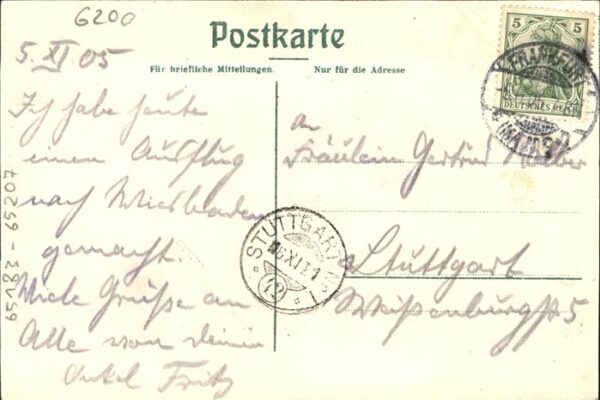 6200
Postkarte
5. XI 05
Für briefliche Mitteilungen.
Nur für die Adresse
5 5
FRANKFURT
(MAIN)
DEUTSCHES REICH
Ich habe heute
einen Ausflug
nach Wiesbaden
gemacht.
Viele Grüße an
Alle von deinem
Onkel Fritz
an
Fräulein Gertrud
Stuttgart
Weißenburgstr 5
STUTTGART No 1
65183 - 65207